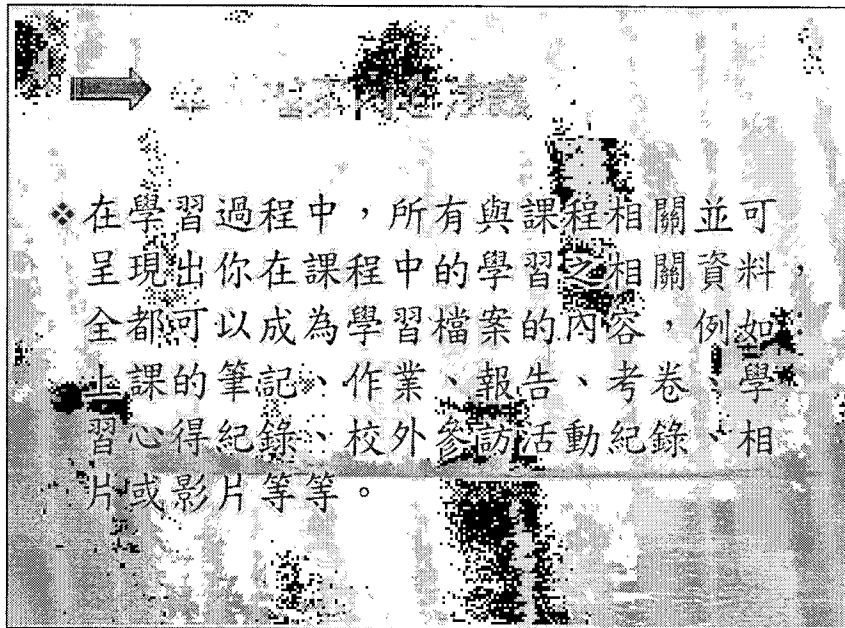 ❖在學習過程中，所有與課程相關並可
呈現出你在課程中的學習之相關資料，
全都可以成為學習檔案的內容，例如
上課的筆記、作業、報告、考卷、學
習心得紀錄、校外參訪活動紀錄、相
片或影片等等。